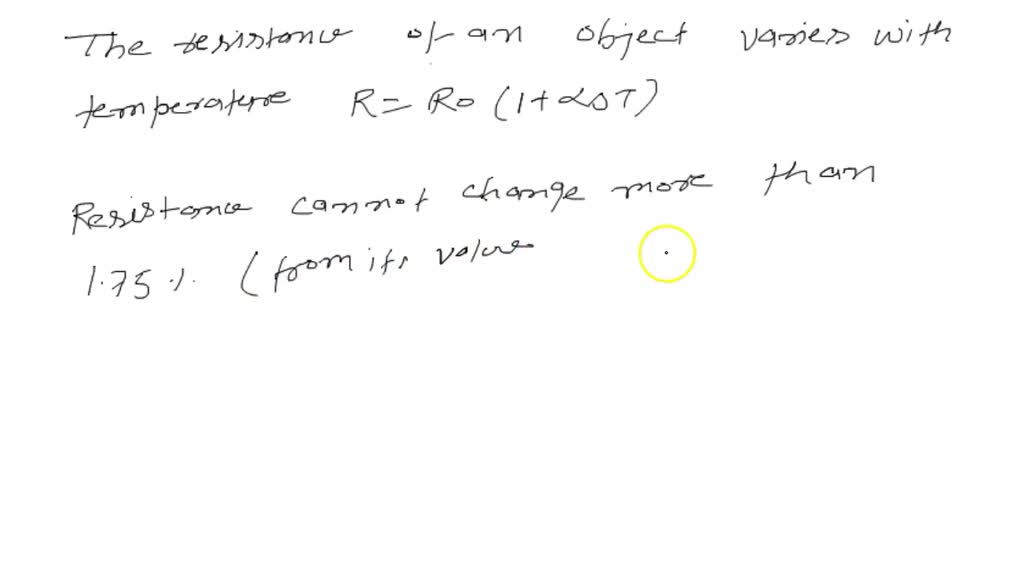 The resistance of an object varies with
temperature R = R0 (1 + α∆T)
Resistance cannot change more than
1.75 % (from its value